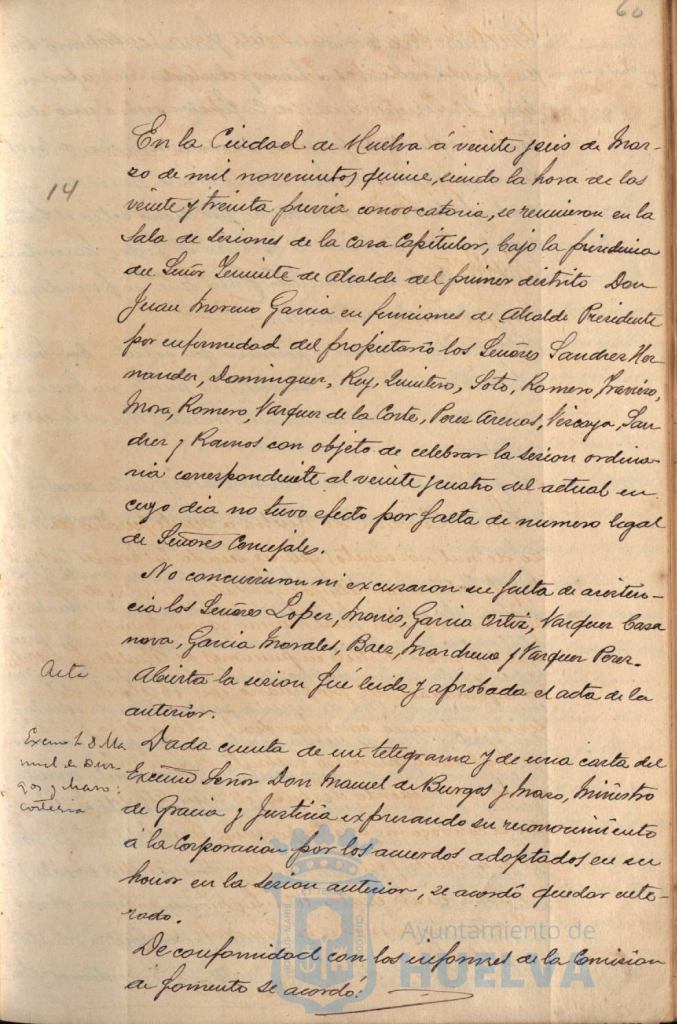 60
14
En la Ciudad de Huelva á veinte y seis de Mar-
zo de mil novecientos quince, siendo la hora de las
veinte y treinta previa convocatoria, se reunieron en la
Sala de sesiones de la casa Capitular, bajo la presidencia
del Señor Teniente de Alcalde del primer distrito Don
Juan Moreno Garcia en funciones de Alcalde Presidente
por enfermedad del propietario los Señores Sandrez Her-
nandez, Dominguez, Rey, Quintero, Soto, Romero, Travieso,
Mora, Romero, Vazquez de la Corte, Perez Arenas, Viscaya, San-
drez y Ramos con objeto de celebrar la sesion ordina-
ria correspondiente al veinte y cuatro del actual en
cuyo dia no tuvo efecto por falta de numero legal
de Señores Concejales.
No concurrieron ni excusaron su falta de asisten-
cia los Señores Lopez, Monis, Garcia Ortiz, Vazquez Casa
nova, Garcia Morales, Baez, Marchena y Vazquez Perez.
Acta
Abierta la sesion fué leida y aprobada el acta de la
anterior.
Excmo Sr D Ma
nuel de Bur
gos y Mazo:
cortesia
Dada cuenta de un telegrama y de una carta del
Excmo Señor Don Manuel de Burgos y Mazo, Ministro
de Gracia y Justicia expresando su reconocimiento
á la Corporacion por los acuerdos adoptados en su
honor en la sesion anterior, se acordó quedar ente-
rado.
De conformidad con los informes de la Comision
de fomento se acordó:
Ayuntamiento de
HUELVA